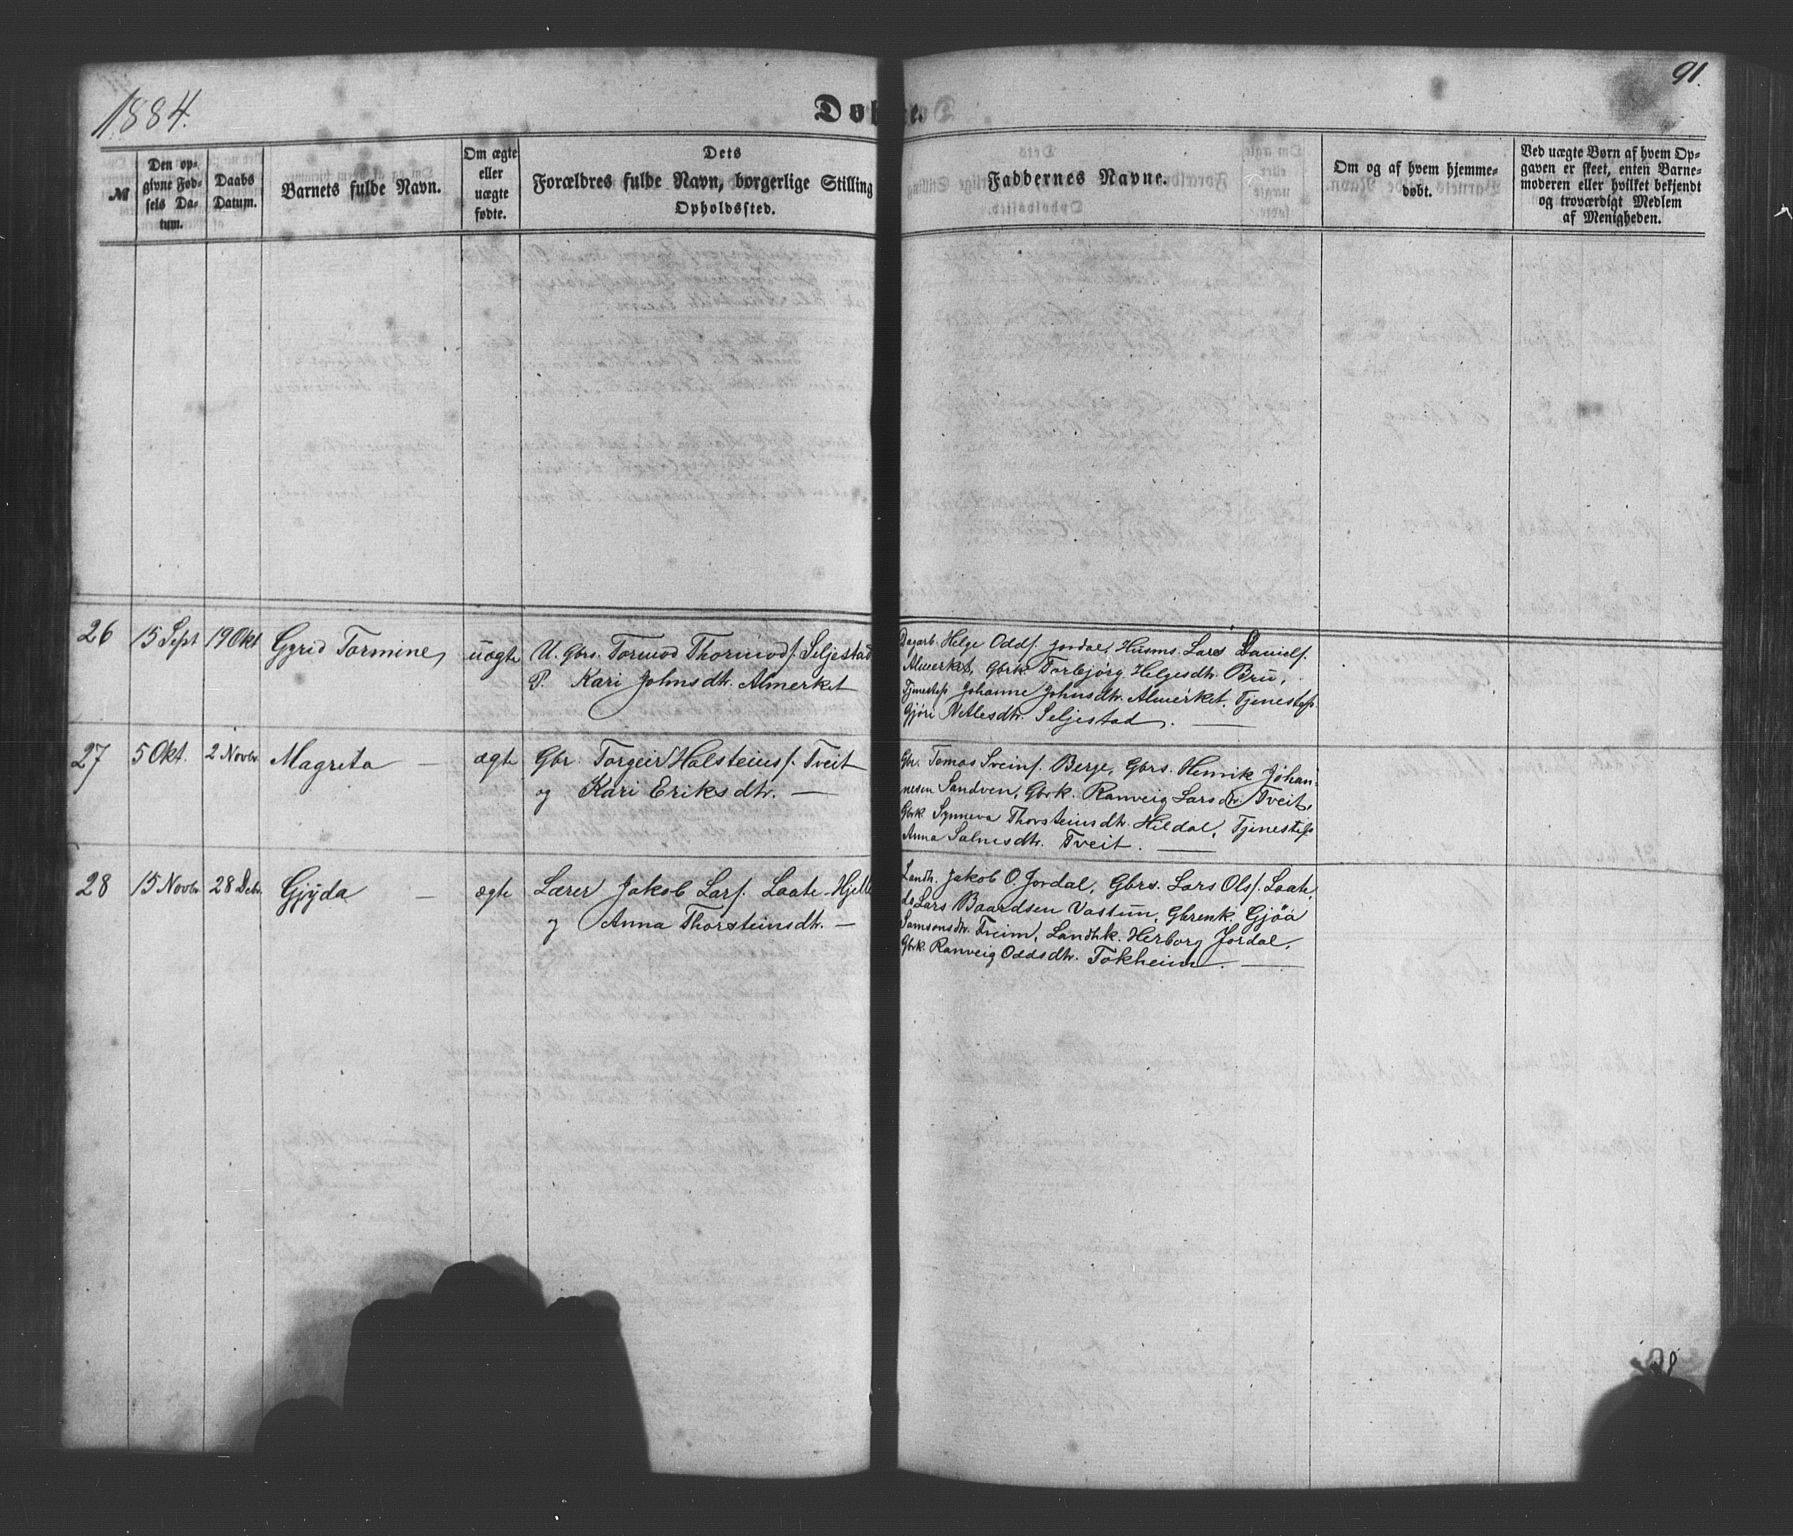 1884.
Døbte.
91.
№
Den op-
givne Fød-
sels Da-
tum.
Daabs
Datum.
Barnets fulde Navn.
Om ægte
eller
uægte
fødte.
Dets
Forældres fulde Navn, borgerlige Stilling
Opholdssted.
Faddernes Navne.
Om og af hvem hjemme-
døbt.
Ved uægte Børn af hvem Op-
gaven er skeet, enten Barne-
moderen eller hvilket bekjendt
og troværdigt Medlem
af Menigheden.
26 15 Sept 19 Okt Gyrid Tormine, uægte
U. Gbrs. Tormod Thormods. Seljestad
P. Kari Johnsdtr. Almerket
Dagarb. Helge Odds. Jordal, Husms. Lars Daniels.
Almerket, Gbrk. Torbjørg Helgesdtr. Bru,
Tjenestep. Johanne Johnsdtr. Almerket, Tjenestep.
Gjøri Netlesdtr. Seljestad.
27 5 Okt. 2 Novbr. Magreta — ægte
Gbr. Torgeir Halsteins. Tveit
og Kari Eriksdtr. —
Gbr. Tomas Sveins. Berge, Gbrs. Henrik Johan-
nesen Sandven, Gbrk. Ranveig Larsdtr. Tveit,
Gbrk Synneva Thorsteinsdtr. Hildal, Tjenestep.
Anna Salmsdtr. Tveit. —
28 15 Novbr. 28 Debr. Gjyda — ægte
Lærer Jakob Lars. Laate-Hjelle
og Anna Thorsteinsdtr. —
Landh. Jakob O. Jordal, Gbrs. Lars Ols. Laate,
do Lars Baardsen Vastun, Gbrenk. Gjøa
Samsonsdtr. Freim, Landhk. Herborg Jordal,
Gbrk. Ranveig Oddsdtr. Tokheim. —